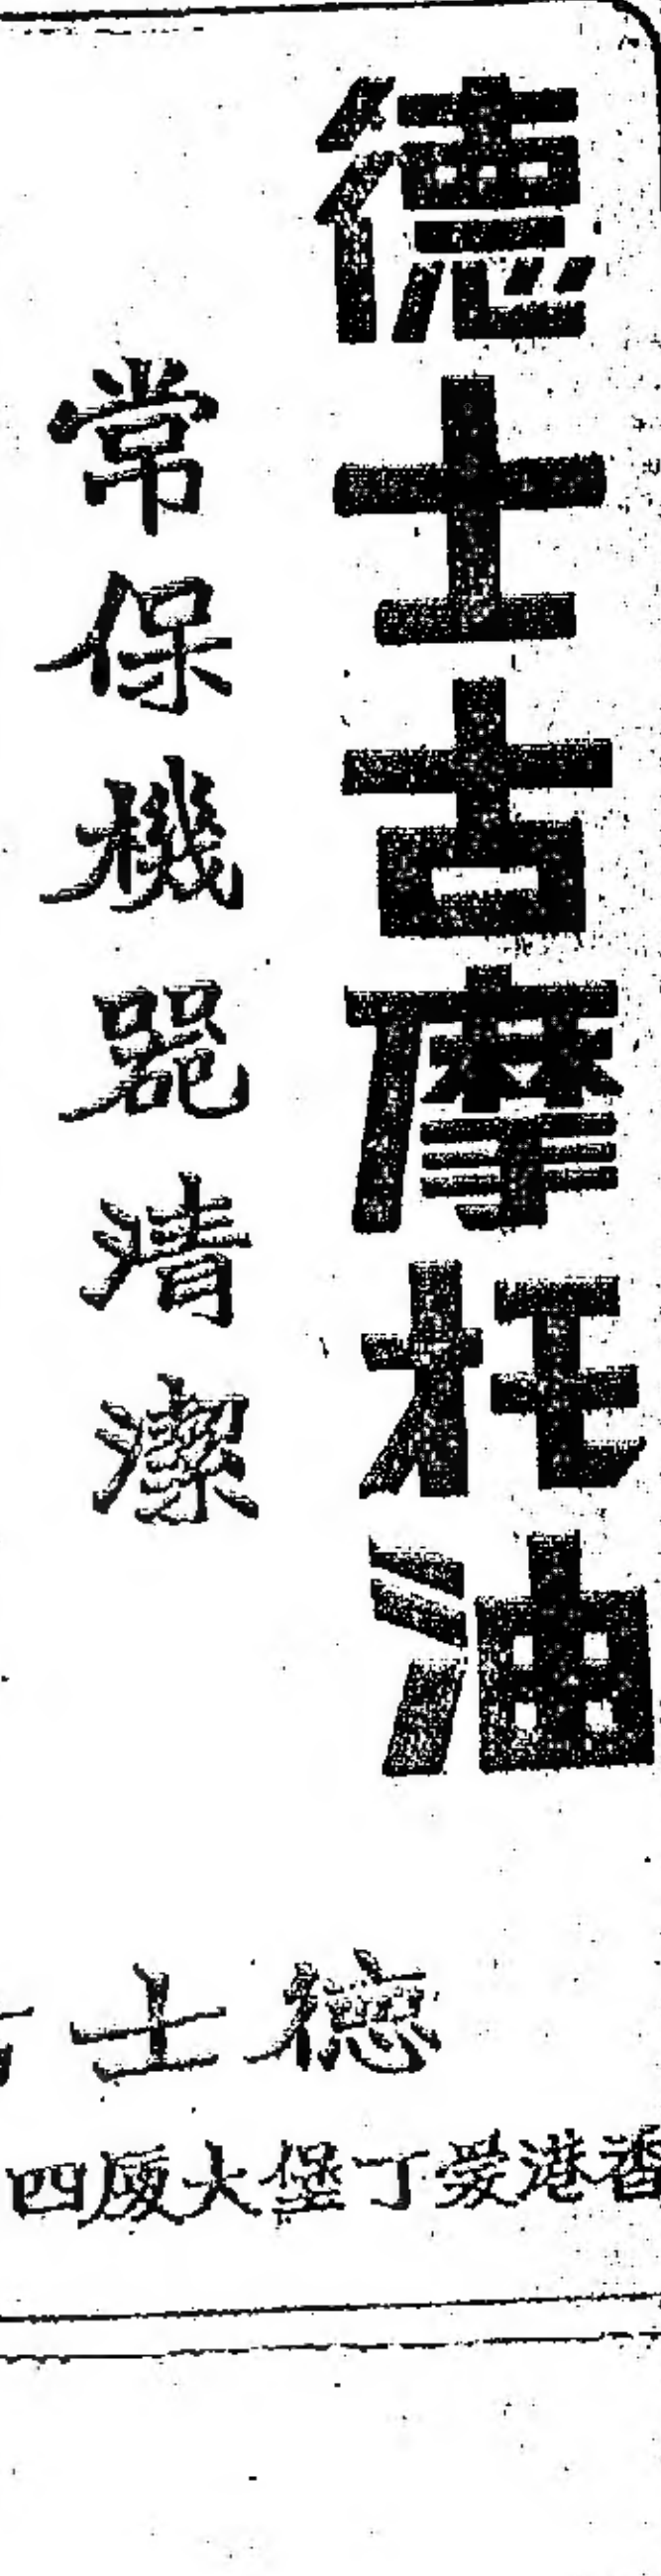 德士古摩托油
常保機器清潔
德士
香港愛丁堡大廈四